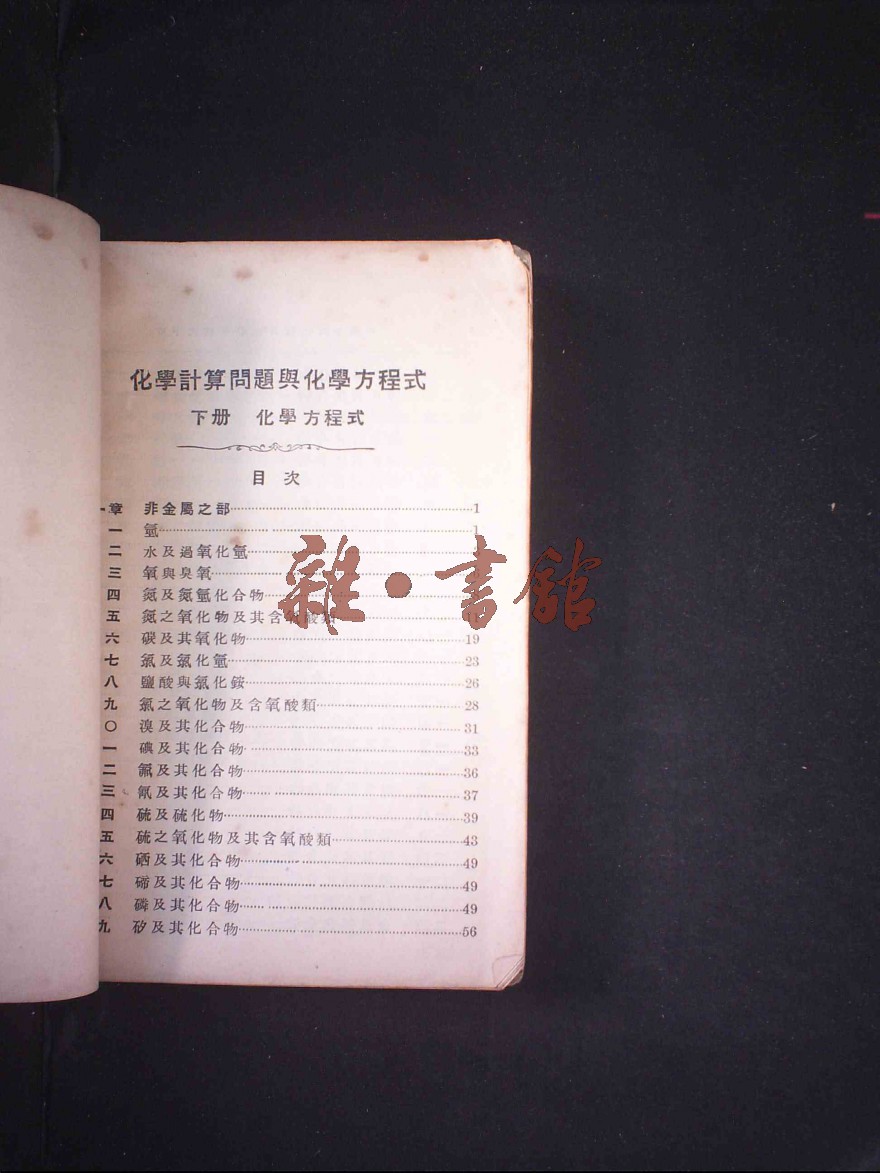 化學計算問題與化學方程式
下册 化學方程式
目次
章 非金屬之部 1
一 氫 1
二 水及過氧化氫
三 氧與臭氧
四 氮及氮氫化合物
五 氮之氧化物及其含氧酸類 11
六 碳及其氧化物 19
七 氯及氯化氫 23
八 鹽酸與氯化銨 26
九 氯之氧化物及含氧酸類 28
〇 溴及其化合物 31
一 碘及其化合物 33
二 氟及其化合物 36
三 氰及其化合物 37
四 硫及硫化物 39
五 硫之氧化物及其含氧酸類 43
六 硒及其化合物 49
七 碲及其化合物 49
八 磷及其化合物 49
九 矽及其化合物 56
雜·書館